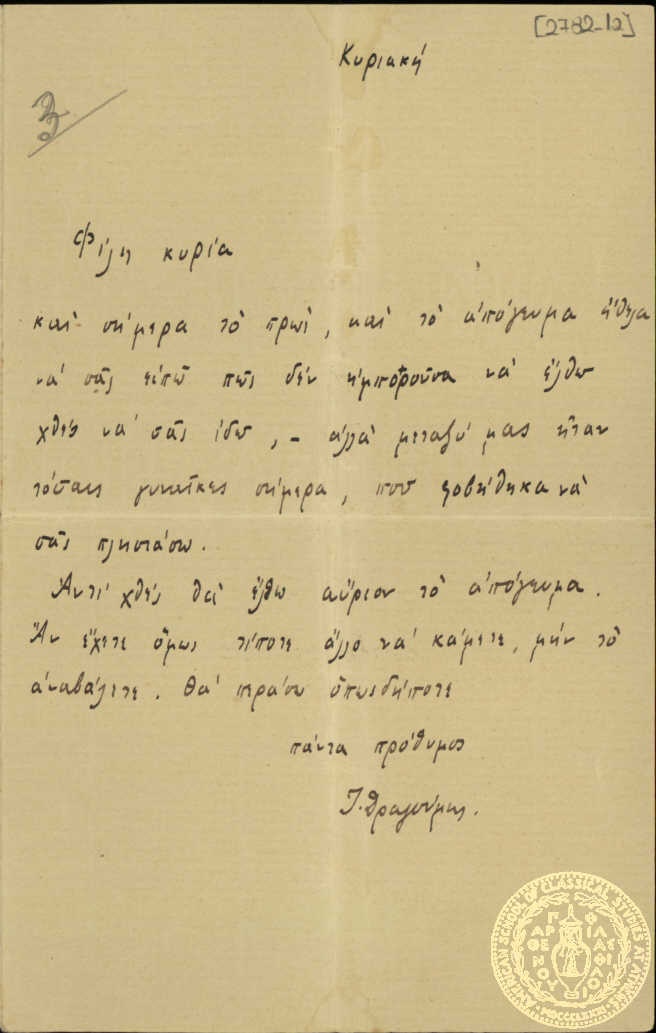 [2782-12]
Κυριακή
3
Φίλη κυρία
καὶ σήμερα τὸ πρωί, καὶ τὸ ἀπόγευμα ἤθελα
νά σᾶς εἰπῶ πῶς δέν ἠμποροῦσα νὰ ἔλθω
χθές νά σᾶς ἰδῶ, – ἀλλὰ μεταξύ μας ἦταν
τόσαις γυναῖκες σήμερα, ποῦ φοβήθηκα νὰ
σᾶς πλησιάσω.
Ἀντί χθές θὰ ἔλθω αὔριον τὸ ἀπόγευμα.
Ἂν ἔχετε ὅμως τίποτε ἄλλο νά κάμετε, μήν τὸ
ἀναβάλετε. Θά περάσω ὁπωσδήποτε
πάντα πρόθυμος
Ἰ. Δραγούμης.
AMERICAN SCHOOL OF CLASSICAL STUDIES AT ATHENS
ΠΑΡΘΕΝΟΥ ΦΙΛΑΣ ΦΙΛΙΟΙ
MDCCCLXXXI